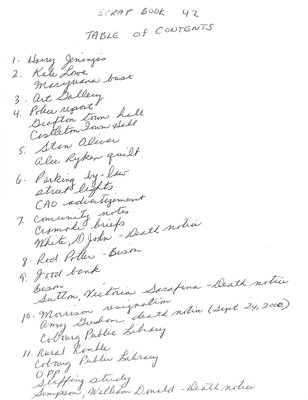 SCRAP BOOK 42
TABLE OF CONTENTS
1. Harry Jennings
2. Kate Lowe
Marijuana bust
3. Art Gallery
4. Police report
Grafton town hall
Castleton Town Hall
5. Stan
Alee Ryken quilt
6. Parking by-law
street lights
CAO advertizement
7. Community notes
Cramahe briefs
White, D John - Death notice
8 Rod Potter - Bison
9 Food bank
Bison
Sutton, Victoria Serafina - Death notice
10. Morrison resignation
Amy death notice (Sept 24, 2000)
Cobourg Public Library
11 Rural Ramble
Cobourg Public Library
OPP
Staffing study
Simpson, William Donald - Death notice